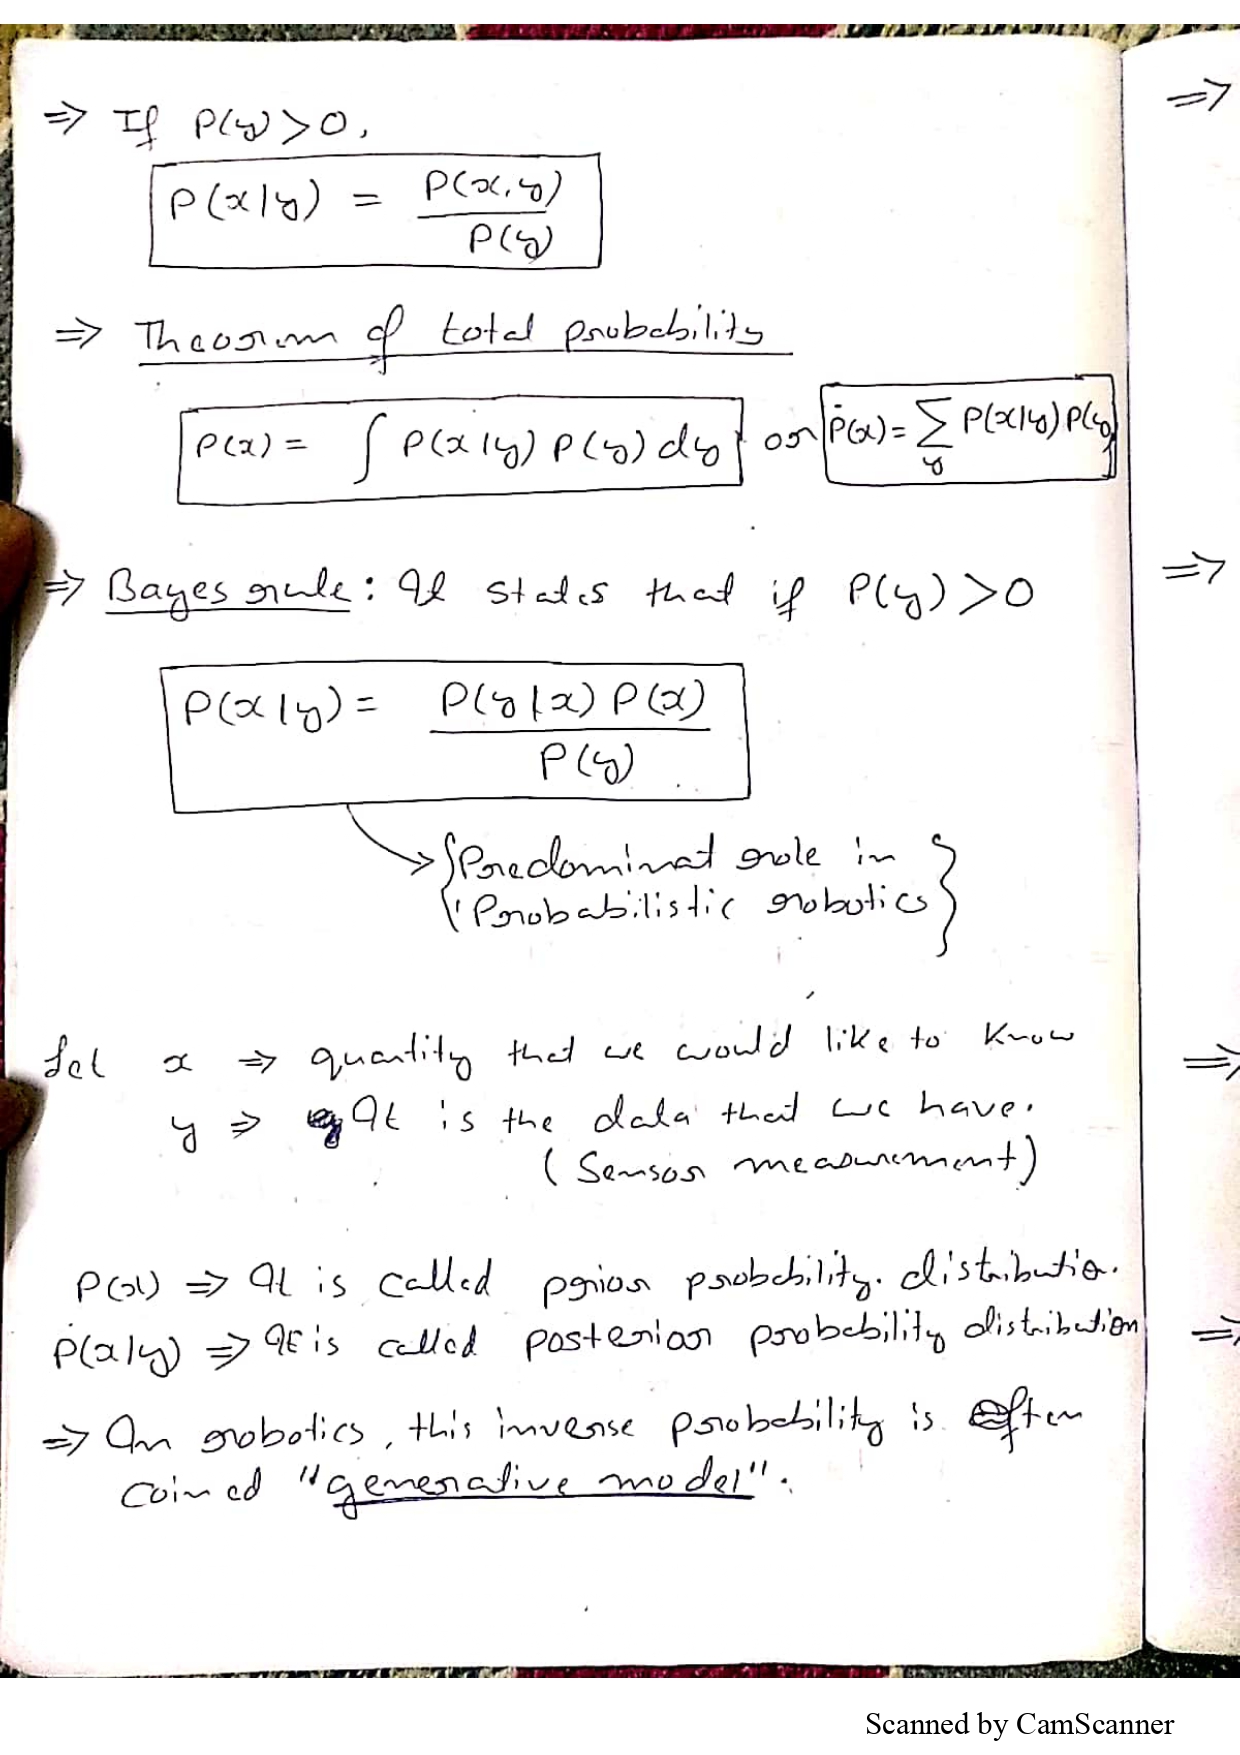 ⇒ If P(y) > 0,
P(x|y) = P(x,y) / P(y)
⇒ Theorem of total probability
P(x) = ∫ P(x|y) P(y) dy or P(x) = ∑_y P(x|y) P(y)
⇒ Bayes rule: It states that if P(y) > 0
P(x|y) = P(y|x) P(x) / P(y)
→ {Predominat role in
Probabilistic robotics}
Let x ⇒ quantity that we would like to know
y ⇒ It is the data that we have.
(Sensor measurement)
P(x) ⇒ It is called prior probability. distribution.
P(x|y) ⇒ It is called posterior probability distribution
⇒ In robotics, this inverse probability is often
coined "generative model".
Scanned by CamScanner